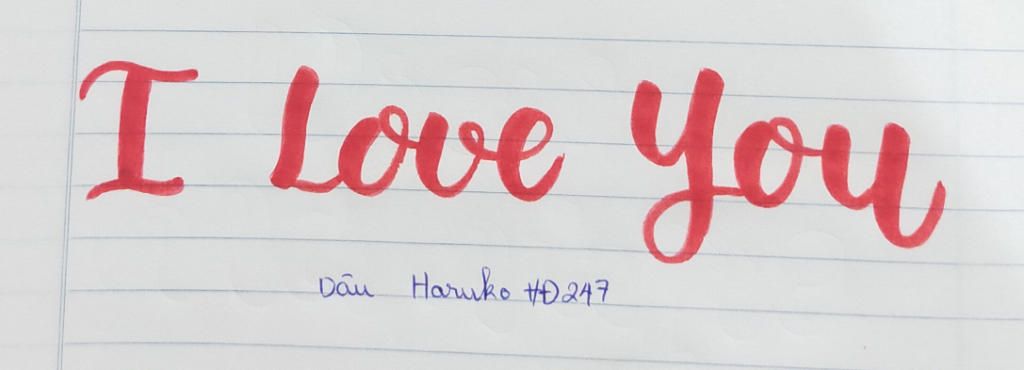 I Love You
Dâu Haruko #Đ247